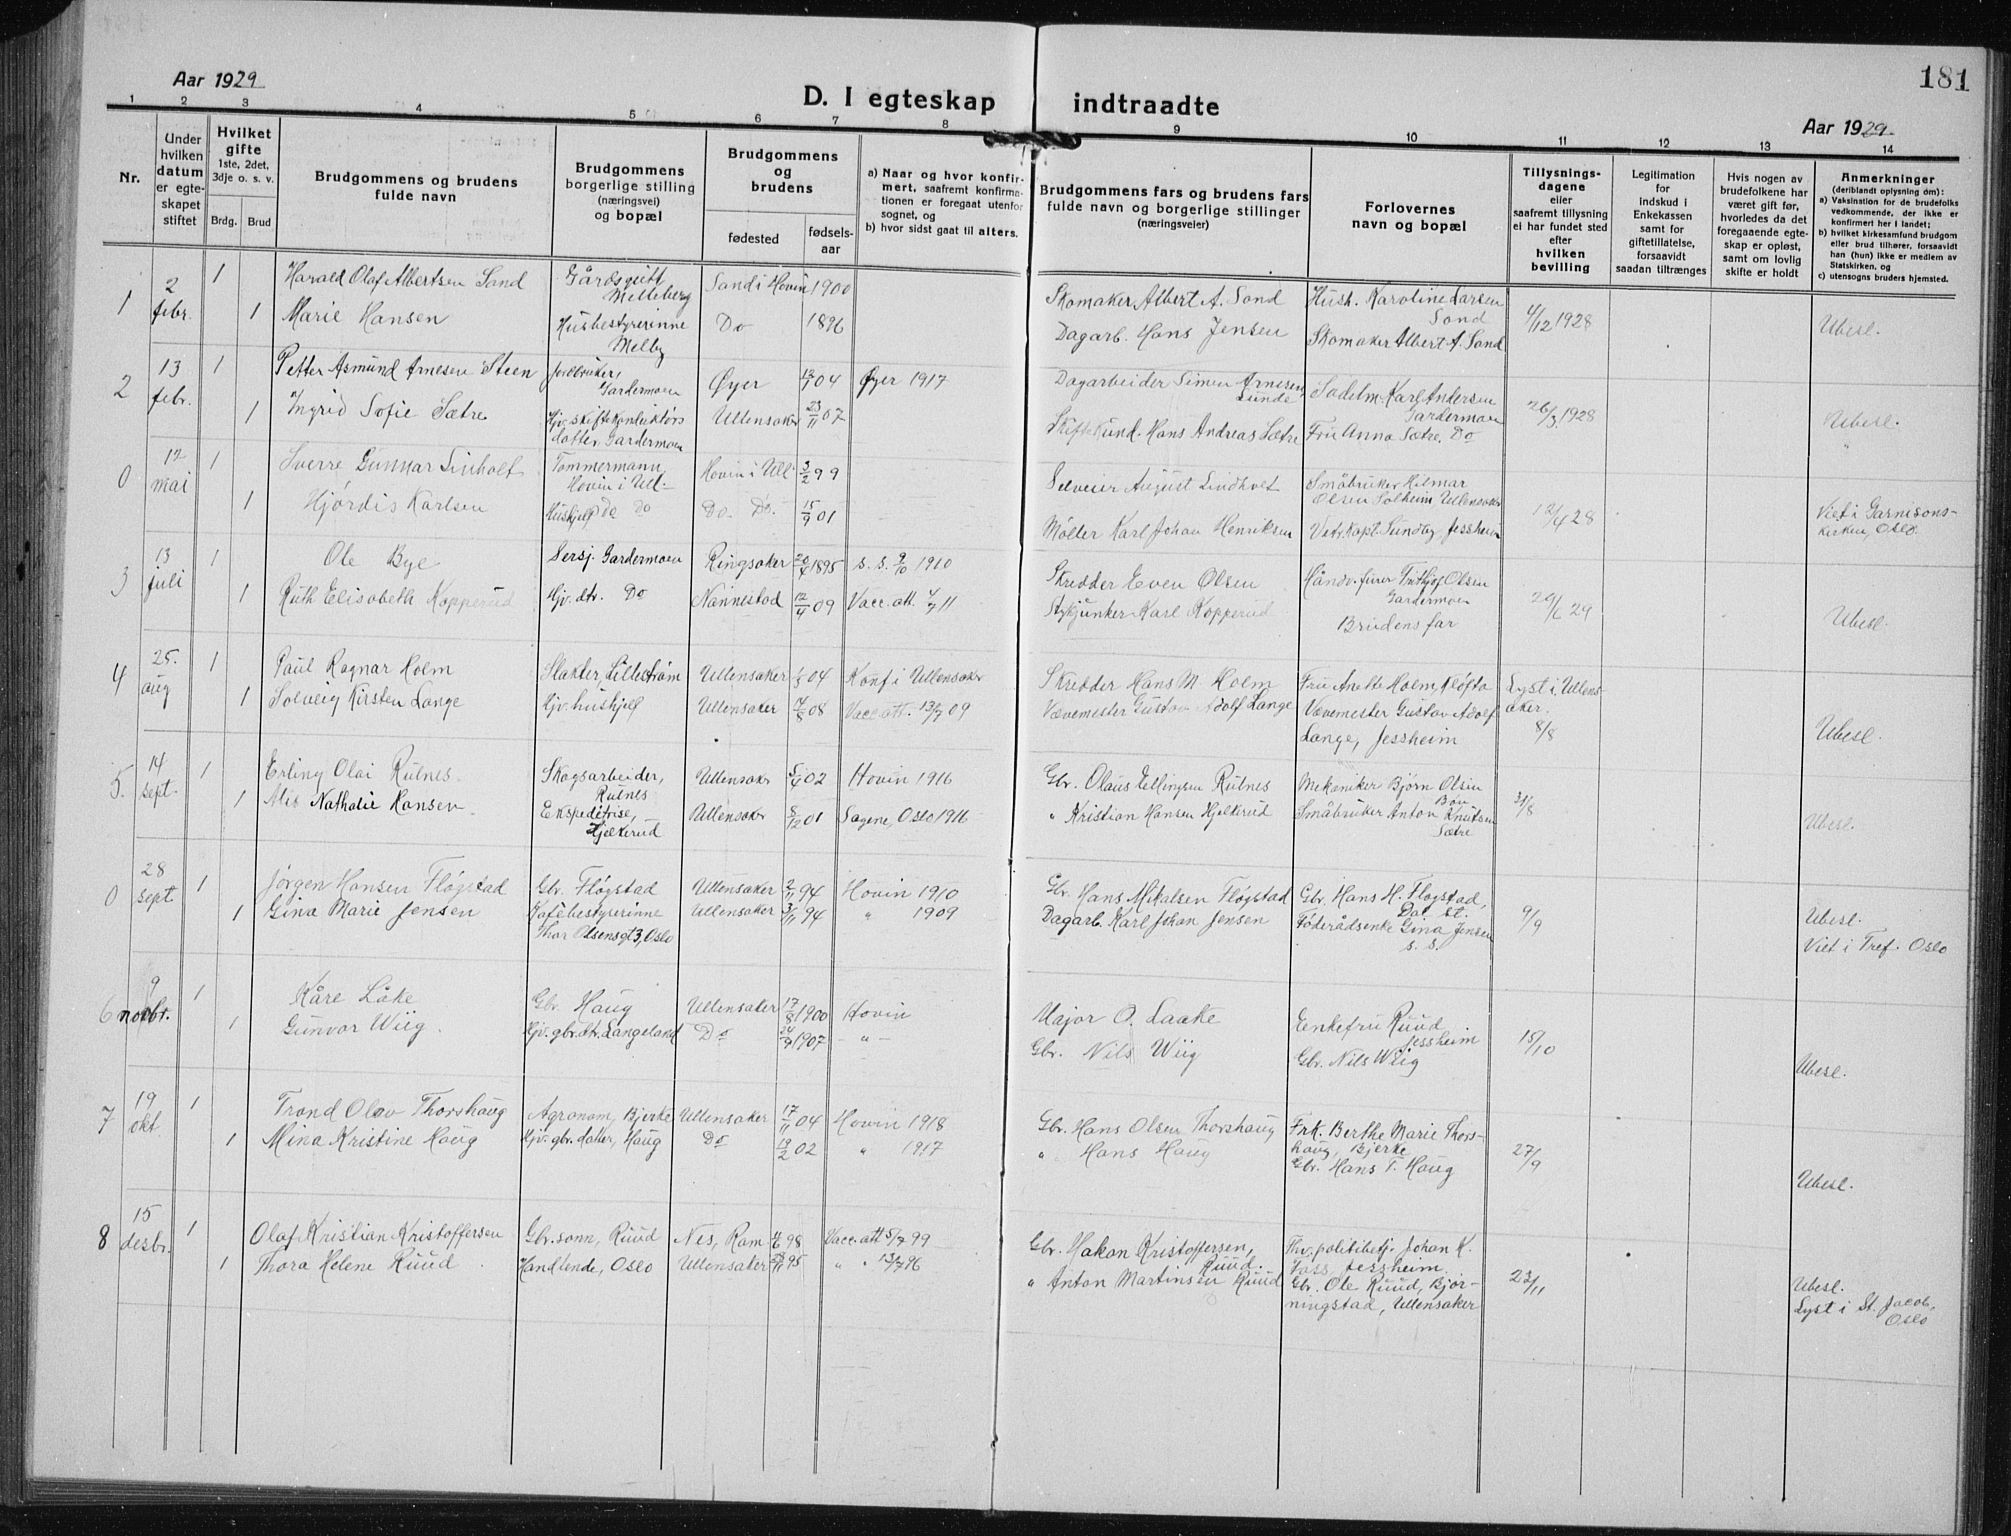 181
Aar 1929
D. I egteskap indtraadte
Aar 1929
1 2 3 4 5 6 7 8 9 10 11 12 13 14
Nr.
Under hvilken datum er egteskapet stiftet
Hvilket gifte
1ste, 2det, 3dje o. s. v.
Brdg. Brud
Brudgommens og brudens fulde navn
Brudgommens borgerlige stilling (næringsvei) og bopæl
Brudgommens og brudens
fødested fødselsaar
a) Naar og hvor konfirmert, saafremt konfirmationen er foregaat utenfor sognet, og
b) hvor sidst gaat til alters.
Brudgommens fars og brudens fars fulde navn og borgerlige stillinger (næringsveier)
Forlovernes navn og bopæl
Tillysningsdagene eller saafremt tillysning ei har fundet sted efter hvilken bevilling
Legitimation for indskud i Enkekassen samt for giftetillatelse, forsaavidt saadan tiltrænges
Hvis nogen av brudefolkene har været gift før, hvorledes da det foregaaende egteskap er opløst, samt om lovlig skifte er holdt
Anmerkninger
(deriblandt oplysning om):
a) Vaksination for de brudefolks vedkommende, der ikke er konfirmert her i landet;
b) hvilket kirkesamfund brudgom eller brud tilhører, forsaavidt han (hun) ikke er medlem av Statskirken, og
c) utensogns bruders hjemsted.
1 2 febr. 1 Harald Olaf Albertsen Sand Gårdsgutt Melleberg Sand i Hovin 1900 Skomaker Albert A. Sand Hush. Karoline Larsen Sand 4/12 1928
1 Marie Hansen Husbestyrerinne Melby Do 1896 Dagarb. Hans Jensen Skomaker Albert A. Sand Ubesl.
2 13 febr. 1 Petter Asmund Arnesen Steen Jordbruker, Gardermoen Øyer 04 Øyer 1917 Dagarbeider Simen Arnesen Lunde Sadelm. Karl Andersen Gardermoen 26/3 1928
1 Ingrid Sofie Sætre Hjv. skiftekonduktørs datter. Gardermoen Ullensaker 23/11 07 Hans Andreas Sætre Fru Anna Sætre, Do Ubesl.
0 12 mai 1 Sverre Gunnar Lindholt Tømmermann, Hovin i Ull. Hovin i Ull. 3/2 99 Selveier August Lindholt Småbruker Hilmar Olsen Solheim Ullensaker 12/4 28
1 Hjørdis Karlsen Hushjelp Do Do Do. Do. 15/9 01 Møller Karl Johan Henriksen Vetr. kapt. Sundby, Jessheim Viet i Garnisonskirken, Oslo.
3 13 juli 1 Ole Bye Sersj. Gardermoen Ringsaker 20/4 1895 s. s. 9/10 1910 Skredder Even Olsen Håndv. furer Trithjof Olsen Gardermoen 29/6 29
1 Ruth Elisabeth Kopperud Hjv. dtr. Do Nannestad 12/4 09 Vacc. att. 4/7 11 Stykjunker Karl Kopperud Brudens far Ubesl.
4 25. aug 1 Paul Ragnar Holm Slakter, Lillestrøm Ullensaker 04 Konf i Ullensaker Skredder Hans M. Holm Fru Anette Holm, Kløfta Lyst i Ullensaker. 8/8
1 Solveig Kirsten Lange Hjv. hushjelp Ullensaker 7/8 08 Vacc. att. 13/7 09 Vævemester Gustav Adolf Lange Vævemester Gustav Adolf Lange, Jessheim Ubesl.
5. 14 sept. 1 Erling Olai Rulnes Skogsarbeider, Rulnes Ullensaker 5/4 02 Hovin 1916 Gbr. Olaus Ellingsen Rulnes Mekaniker Bjørn Olsen Bon 31/8
1 Mis Nathalie Hansen Ekspeditrise, Hjelkerud Ullensaker 8/12 01 Sagene, Oslo 1916 " Kristian Hansen Hjelkerud Småbruker Anton Knutsen Sætre Ubesl.
0 28 sept 1 Jørgen Hansen Fløgstad Gbr. Fløgstad Ullensaker 2/11 94 Hovin 1910 Gbr. Hans Mikalsen Fløgstad Gbr. Hans H. Fløgstad, 9/9
1 Gina Marie Jensen Kafebestyrerinne Thor Olsensgt 3, Oslo Ullensaker 3/11 94 " 1909 Dagarb. Karl Johan Jensen Føderådsenke Gina Jensen s. s. Ubesl. Viet i Tref. Oslo
6 9 novbr. 1 Kåre Låke Gbr. Haug Ullensaker 17/8 1900 Hovin Major O. Laake Enkefru Ruud Jessheim 15/10
1 Gunvor Wiig. Hjv. gbr. dtr. Langeland Do 24/9 1907 – " – Gbr. Nils Wiig Gbr. Nils Wiig Ubesl.
7 19 okt. 1 Trond Olav Thorshaug Agronom, Bjerke Ullensaker 17/11 04 Hovin 1918 Gbr. Hans Olsen Thorshaug Frk. Berthe Marie Thorshaug, Bjerke 27/9
1 Mina Kristine Haug Hjv. gbr. datter, Haug Do 19/2 02 " 1917 " Hans Haug Gbr. Hans T. Haug Ubesl.
8 15 desbr. 1 Olaf Kristian Kristoffersen Gbr. sønn, Ruud Nes, Rom. 98 Vacc. att 5/7 99 Gbr. Hakon Kristoffersen, Ruud. Thv. politibetj. Johan K. Foss Jessheim. 23/11
1 Thora Helene Ruud Handlende, Oslo Ullensaker 95 " " 13/7 96 " Anton Martinsen Ruud Gbr. Ole Ruud, Bjørningstad, Ullensaker Ubesl. Lyst i St. Jacob, Oslo